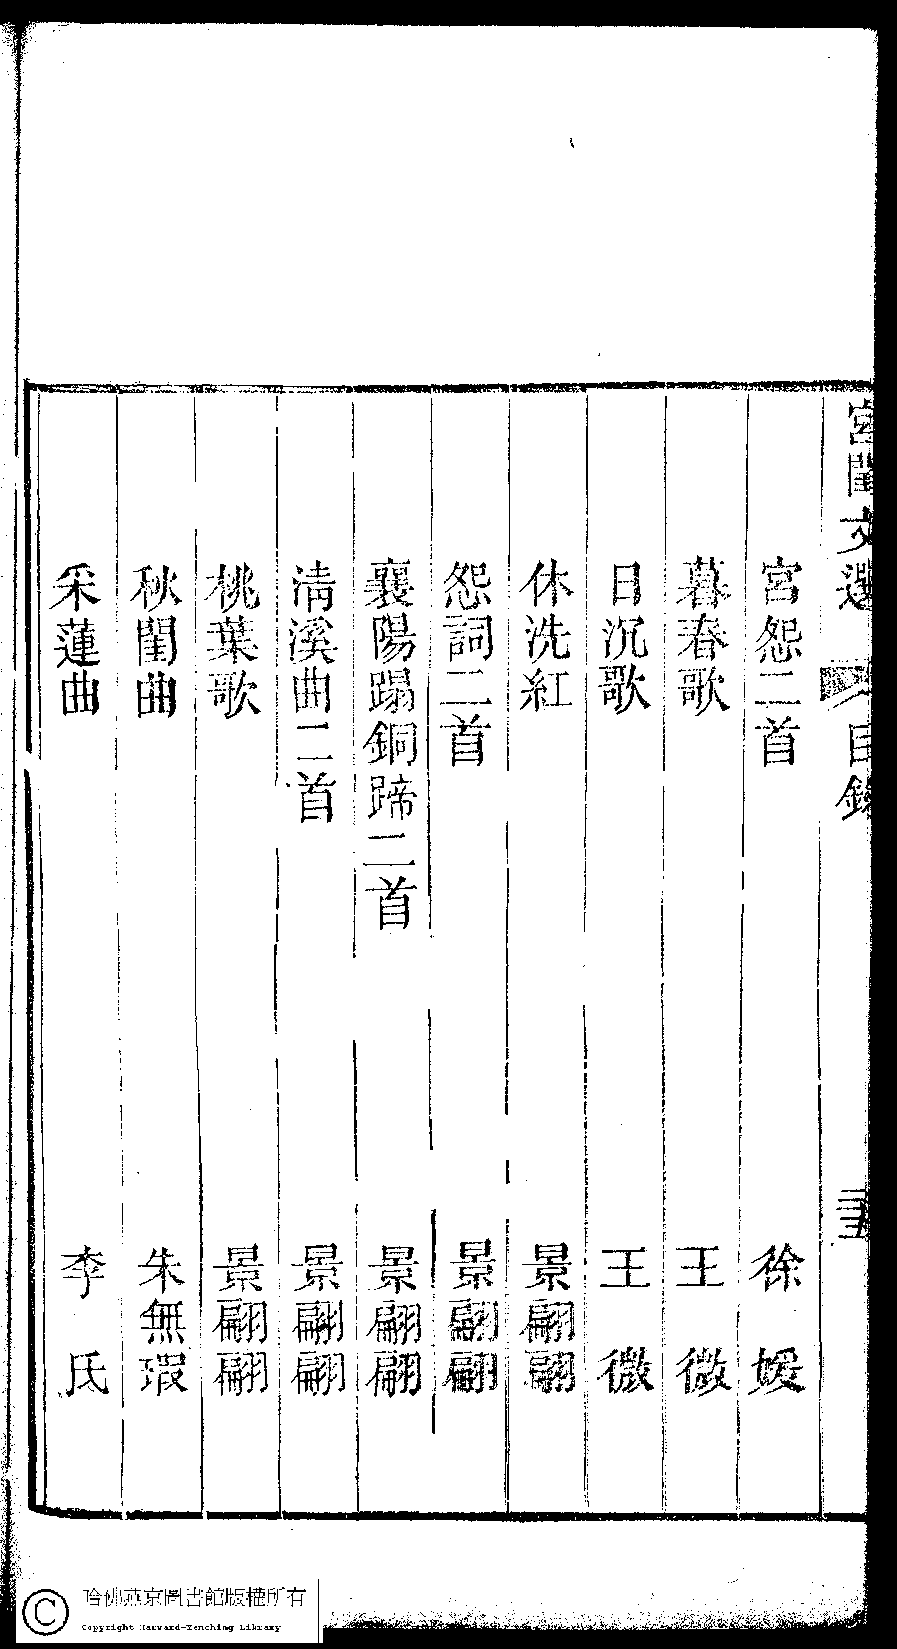 宮閨文選 目錄
宮怨二首 徐媛
暮春歌 王微
日沉歌 王微
休洗紅 景翩翩
怨詞二首 景翩翩
襄陽蹋銅蹄二首 景翩翩
淸溪曲二首 景翩翩
桃葉歌 景翩翩
秋閨曲 朱無瑕
采蓮曲 李氏
哈佛燕京圖書館版權所有
Copyright Harvard-Yenching Library